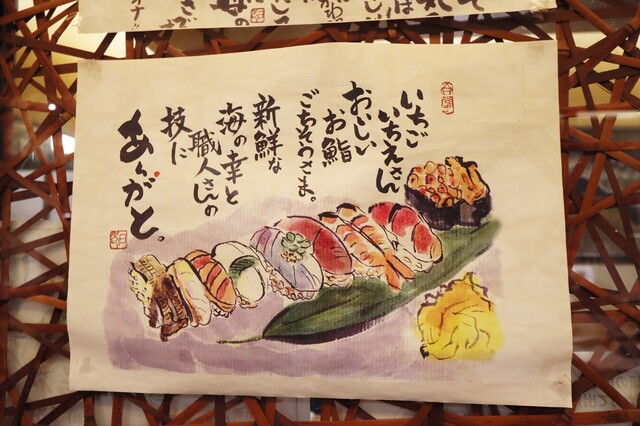 いちご
いちえさん
おいしい
お鮨
ごちそうさま。
新鮮な
海の幸と
職人さんの
技に
ありがと。